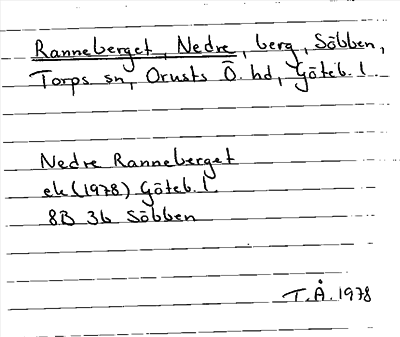 Ranneberget, Nedre, berg, Söbben,
Torps sn, Orusts Ö. hd, Göteb. l.
Nedre Ranneberget
ek (1978) Göteb. l.
8B 3b Söbben
T.Å. 1978